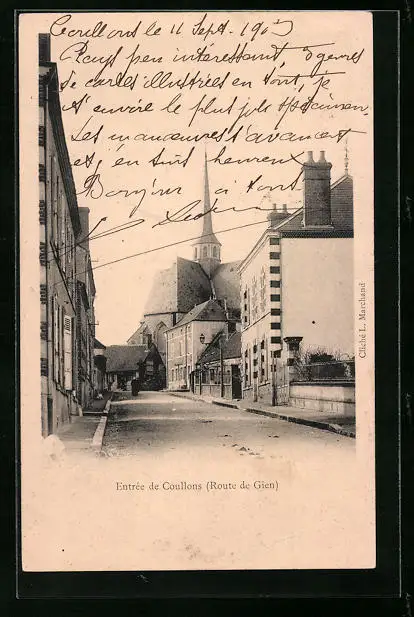 Coullons le 11 Sept. 1903
Pays peu intéressant,
de cartes illustrées en tout, je
t'envoie le plus joli
Les manœuvres s'avancent
et j'en suis heureux
Bonjour à tous
Cliché L. Marchand
Entrée de Coullons (Route de Gien)